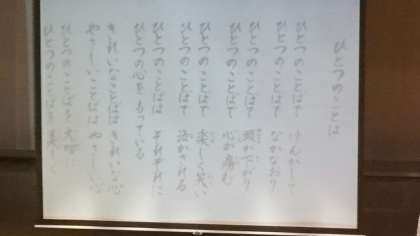 ひとつのことば
ひとつのことばで けんかして
ひとつのことばで なかなおり
ひとつのことばで 頭が下がり
ひとつのことばで 心が痛む
ひとつのことばで 楽しく笑い
ひとつのことばで 泣かされる
ひとつのことばは それぞれに
ひとつの心をもっている
きれいなことばは きれいな心
やさしいことばは やさしい心
ひとつのことばを 大切に
ひとつのことばを 美しく